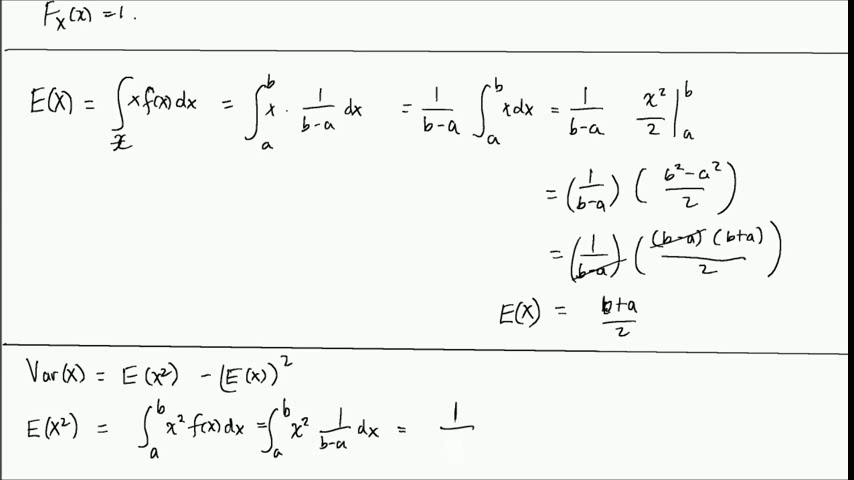 F_X(x) = 1.
E(X) = ∫_𝒳 x f(x) dx = ∫_a^b x · 1/(b-a) dx = 1/(b-a) ∫_a^b x dx = 1/(b-a) x²/2 |_a^b
= (1/(b-a)) ((b²-a²)/2)
= (1/(b-a)) ((b-a)(b+a)/2)
E(X) = (b+a)/2
Var(X) = E(X²) - (E(X))²
E(X²) = ∫_a^b x² f(x) dx = ∫_a^b x² 1/(b-a) dx = 1/